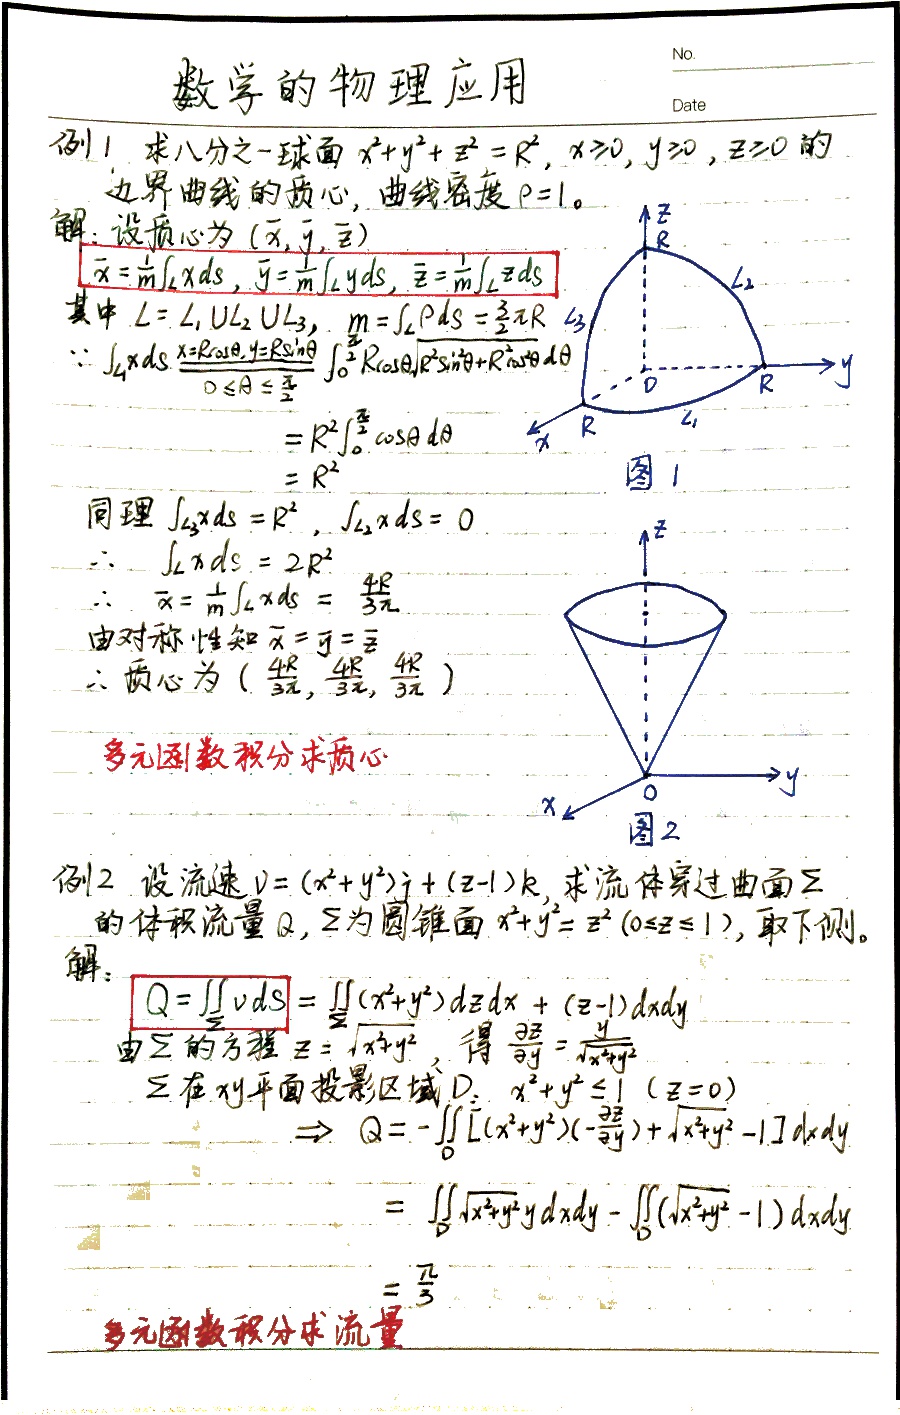 No.
数学的物理应用
Date
例1 求八分之一球面 x²+y²+z²=R², x≥0, y≥0, z≥0 的
边界曲线的质心, 曲线密度 ρ=1。
解: 设质心为 (x̄, ȳ, z̄)
x̄=1/m∫_L xds, ȳ=1/m∫_L yds, z̄=1/m∫_L zds
其中 L=L₁∪L₂∪L₃, m=∫_L ρds=3/2πR
∵ ∫_L₁ xds x=Rcosθ, y=Rsinθ 0≤θ≤π/2 ∫₀^(π/2) Rcosθ√(R²sin²θ+R²cos²θ)dθ
=R²∫₀^(π/2) cosθdθ
=R²
同理 ∫_L₃ xds=R², ∫_L₂ xds=0
∴ ∫_L xds=2R²
∴ x̄=1/m∫_L xds=4R/3π
由对称性知 x̄=ȳ=z̄
∴ 质心为 (4R/3π, 4R/3π, 4R/3π)
多元函数积分求质心
z
R
L₂
L₃
O
R
y
x
R
L₁
图1
z
O
y
x
图2
例2 设流速 v=(x²+y²)j+(z-1)k, 求流体穿过曲面Σ
的体积流量Q, Σ为圆锥面 x²+y²=z² (0≤z≤1), 取下侧。
解:
Q=∬_Σ vdS = ∬_Σ (x²+y²)dzdx + (z-1)dxdy
由Σ的方程 z=√(x²+y²), 得 ∂z/∂y=y/√(x²+y²)
Σ在xy平面投影区域D: x²+y²≤1 (z=0)
⇒ Q=-∬_D [(x²+y²)(-∂z/∂y)+√(x²+y²)-1]dxdy
= ∬_D √(x²+y²)ydxdy-∬_D (√(x²+y²)-1)dxdy
=π/3
多元函数积分求流量